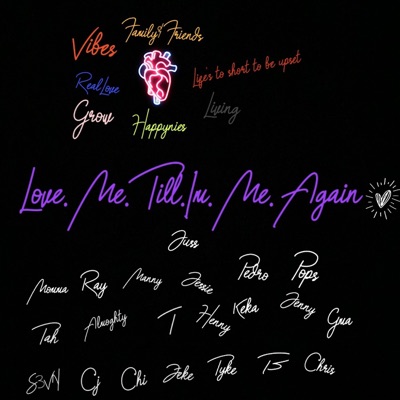 Family & Friends
Vibes
Real Love
Life's to short to be upset
Grow
Living
Happynies
Love. Me. Till. Im. Me. Again
Juss
Momma Ray Manny Jessie Pedro Pops
Tah Almoghty T Henny Keka Jenny Gma
S3VN Cj Chi Zeke Tyke B Chris